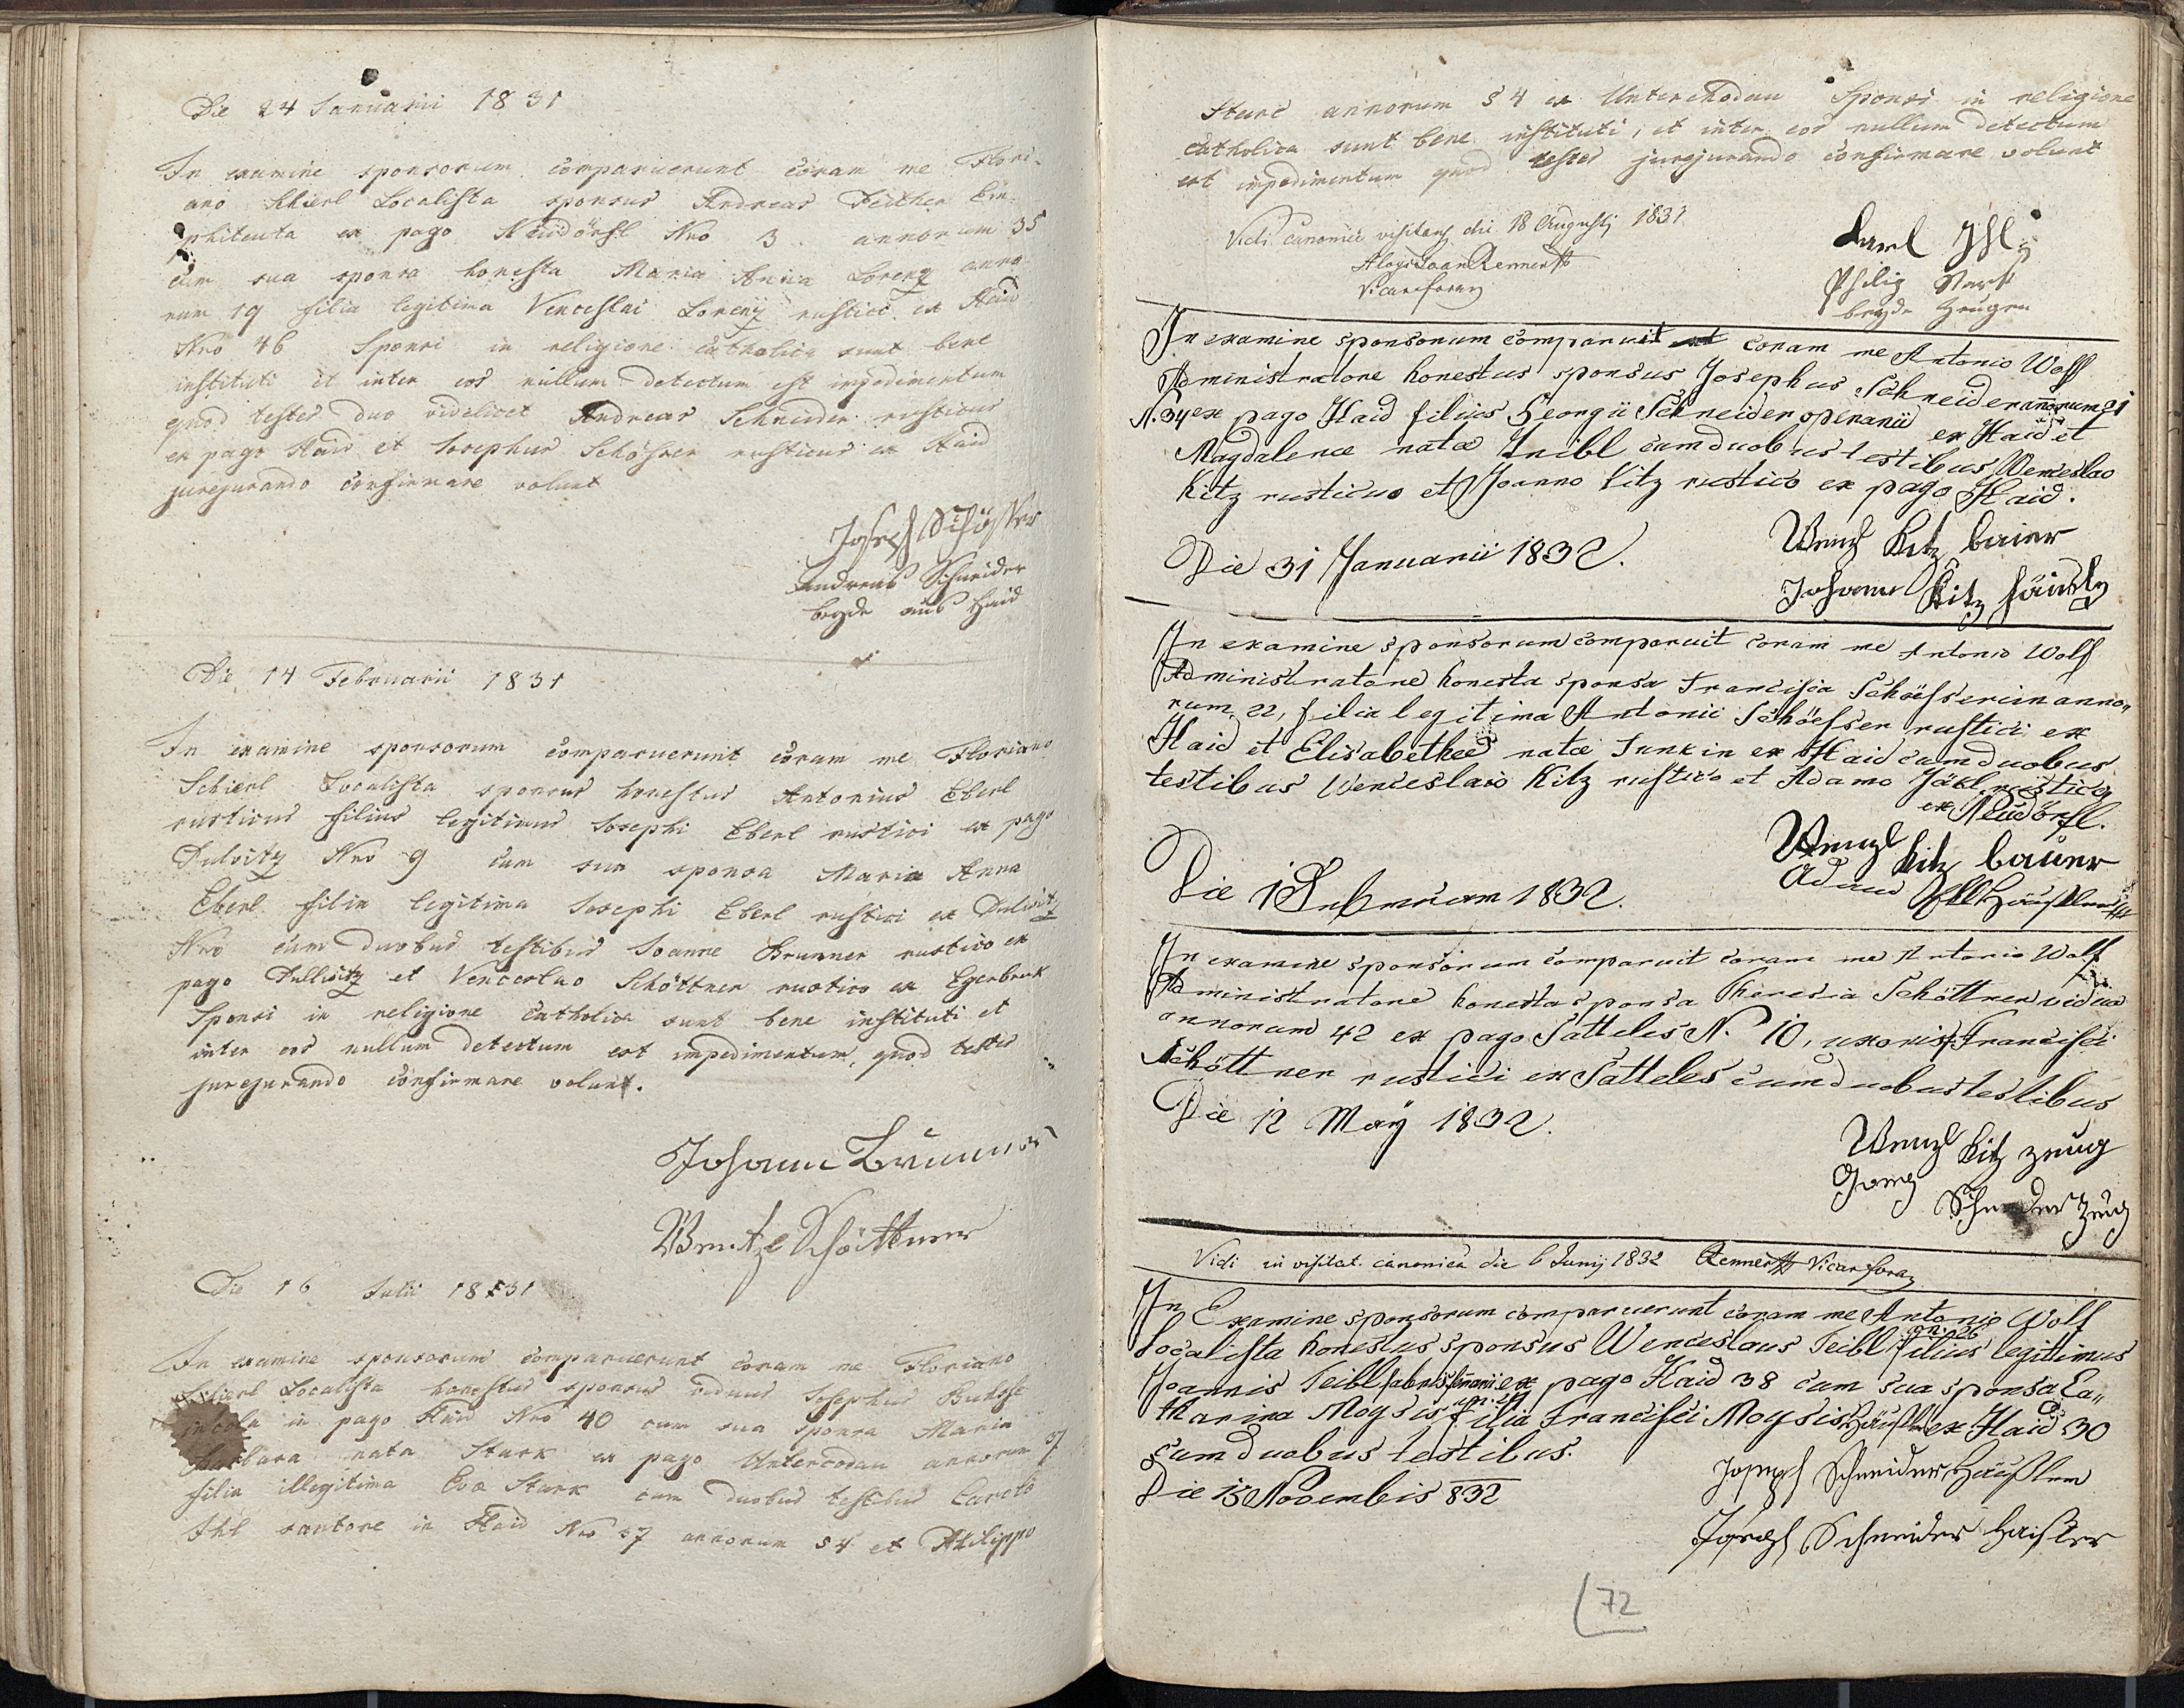 Die 24 Januarii 1831
In examine sponsorum comparuerunt coram me Flori-
ano Schierl Localista sponsus Andreas Feither Em-
phiteuta ex pago Neudörfl Nro 3. annorum 35
cum sua sponsa honesta Maria Anna Lorenz anno-
rum 19 filia legitima Venceslai Lorenz rustici ex Haid
Nro 46 Sponsi in religione catholica sunt bene
instituti et inter eos nullum detectum est impedimentum
quod testes duo videlicet Andreas Schneider rusticus
ex pago Haid et Josephus Schösser rusticus ex Haid
jurejurando confirmare volunt
Joseph Schösser
Andreas Schneider
beyde aus Haid
Die 14 Februarii 1831
In examine sponsorum comparuerunt coram me Floriano
Schierl Localista sponsus honestus Antonius Eberl
rusticus filius legitimus Josephi Eberl rustici ex pago
Dulvitz Nro 9 cum sua sponsa Maria Anna
Eberl filia legitima Josephi Eberl rustici ex Dulvitz
Nro cum duobus testibus Joanne Brunner rustico ex
pago Dullvitz et Venceslao Schöttner rustico ex Egerbruk
Sponsi in religione catholica sunt bene instituti et
inter eos nullum detectum est impedimentum, quod testes
jurejurando confirmare volunt.
Johann Brunner
Wentzl Schöttner
Die 16 Julii 1831
In examine sponsorum comparuerunt coram me Floriano
Schierl Localista honestus sponsus viduus Josephus
incola in pago Haid Nro 40 cum sua sponsa Maria
Barbara nata Stark ex pago Untercodau annorum 37
filia illegitima Evæ Stark cum duobus testibus Carolo
Ihl sartore in Haid Nro 57 annorum 54 et Philippo
Stark annorum 54 ex Unterchodau Sponsi in religione
catholica sunt bene instituti, et inter eos nullum detectum
est impedimentum quod testes jurejurando confirmare volunt
Vidi canonice visitans die 18 Augusti 1831
Aloys Joan Renner
Vicar foran
Karl Ihl
Philip Stark
beyde Zeugen
In examine sponsorum comparuit coram me Antonio Wolf
Administratore honestus sponsus Josephus Schneider annorum 21
N. 34 ex pago Haid filius Georgii Schneider operarii ex Haid et
Magdalenæ natæ Treibl cum duobus testibus Wenceslao
Kitz rusticus et Joanno Kitz rustico ex pago Haid.
Die 31 Januarii 1832.
Wenzl Kitz baier
Johann Kitz häusler
In examine sponsorum comparuit coram me Antonio Wolf
Administratore honesta sponsa Francisca Schöesserin anno„
rum 22, filia legitima Antonii Schöesser rustici ex
Haid et Elisabethæ natæ Funkin ex Haid cum duobus
testibus Wenceslaio Kitz rustico et Adamo Jäkl rustico
ex Neudörfl.
Die 1 Februarium 1832.
Wenzl Kitz bauer
Adam Häußler
In examine sponsorum comparuit coram me Antonio Wolf
Administratore honesta sponsa Theresia Schöttner vidua
annorum 42 ex pago Satteles N. 10, uxoris Francisci
Schöttner rustici ex Satteles cum duobus testibus
Die 12 May 1832.
Wenzl Kitz zeug
Georg Schneider Zeug
Vidi in visitat. canonica die 6 Junij 1832 Renner Vicar foran
In Examine sponsorum comparuerunt coram me Antonio Wolf
an. 26
Localista honestus sponsus Wenceslaus Teibl filius legittimus
Joannis Teibl fabri ex pago Haid 38 cum sua sponsa Ca„
tharina Moysis filia Francisci Moysis Häußler ex Haid 30
cum duobus testibus.
Die 15 Novembis 832
Joseph Schneider Häußlem
Joseph Schneider Haißler
72